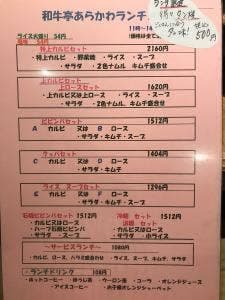 和牛亭あらかわランチ
11時～14
ライス大盛り 54円
特上カルビセット 2160円
・特上カルビ ・野菜焼 ・ライス ・スープ
・サラダ ・2色ナムル、キムチ盛合せ
上カルビセット
上ロースセット 1620円
・上カルビ又は上ロース ・ライス ・スープ
・サラダ ・2色ナムル、キムチ盛合せ
ビビンバセット 1512円
A カルビ 又は B ロース
・サラダ ・キムチ ・スープ
クッパセット 1404円
C カルビ 又は D ロース
・サラダ ・キムチ
ライス、スープセット 1296円
E カルビ 又は F ロース
・サラダ ・キムチ
石焼ビビンバセット 1512円
・カルビ又はロース
・ハーフ石焼ビビンバ
・サラダ ・スープ
冷麺 セット 1512円
・カルビ又はロース
・サラダ
～サービスランチ～ 1080円
・カルビ、ハラミ、ロース ・ライス ・スープ ・サラダ ・キムチ
・ランチドリンク 108円
・ホットコーヒー ・ほうじ茶 ・ウーロン茶 ・コーラ ・オレンジジュース
・アイスコーヒー
500円